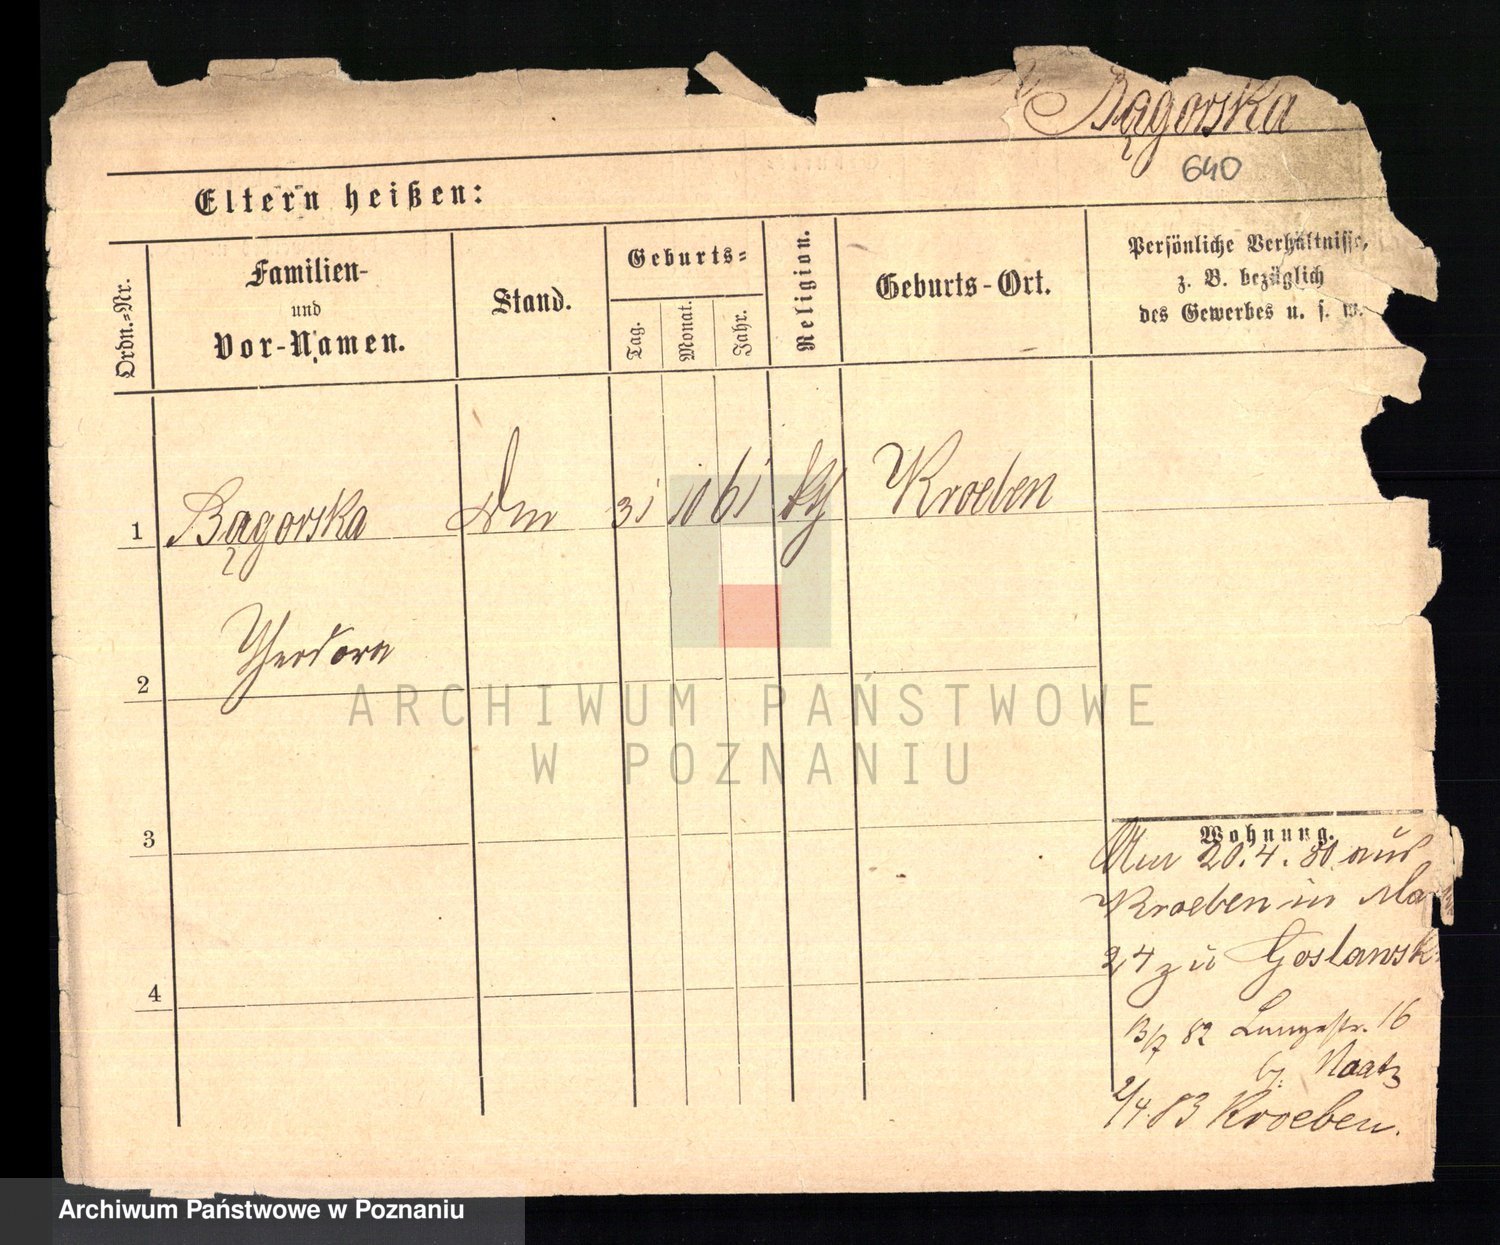 Bągorska
640
Eltern heißen:
Ordn.-Nr.
Familien-
und
Vor-Namen.
Stand.
Geburts-
Tag.
Monat.
Jahr.
Religion.
Geburts-Ort.
Persönliche Verhältnisse,
z. B. bezüglich
des Gewerbes u. s. w.
1 Bągorska 31 10 61 Kroeben
Theodora
2
3
4
Wohnung.
20.4.80 aus
Kroeben in
24 zu Goslawsk
13/7 82 Langestr. 16
b. Naatz
2/4.83 Kroeben.
ARCHIWUM PAŃSTWOWE
W POZNANIU
Archiwum Państwowe w Poznaniu